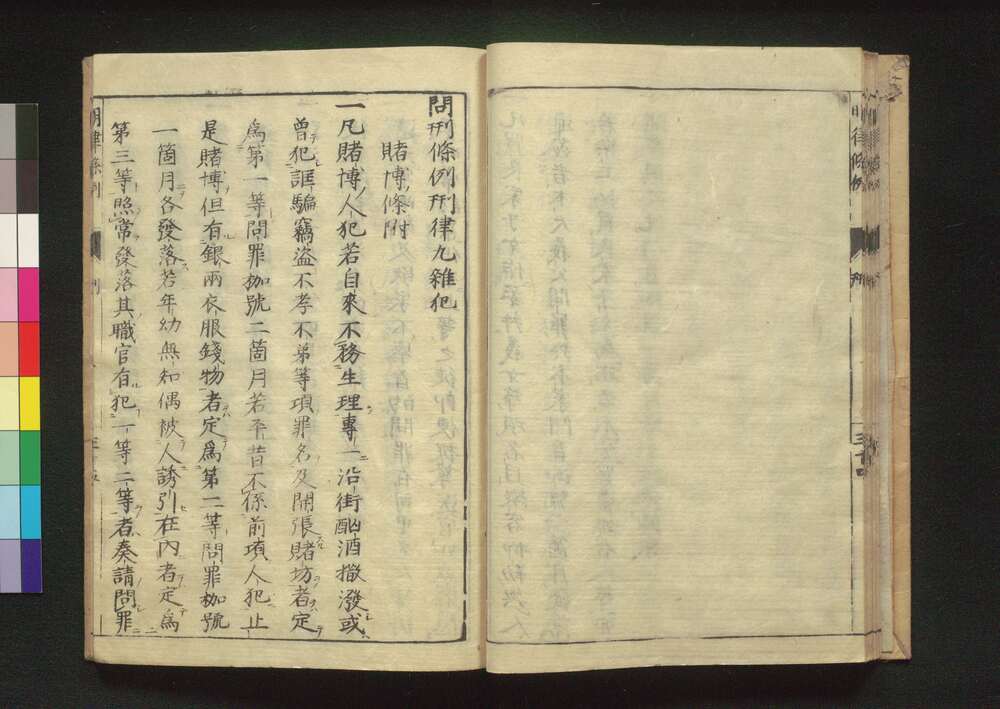 問刑條例刑律九雜犯
賭博條附
一凡賭博人犯若自來不務生理專一沿街酗酒撒潑或
曾犯誆騙竊盜不孝不弟等項罪名及開張賭坊者定
爲第一等問罪枷號二箇月若平昔不係前項人犯止
是賭博但有銀兩衣服錢物者定爲第二等問罪枷號
一箇月各發落若年幼無知偶被人誘引在內者定爲
第三等照常發落其職官有犯一等二等者奏請問罪
明律條例